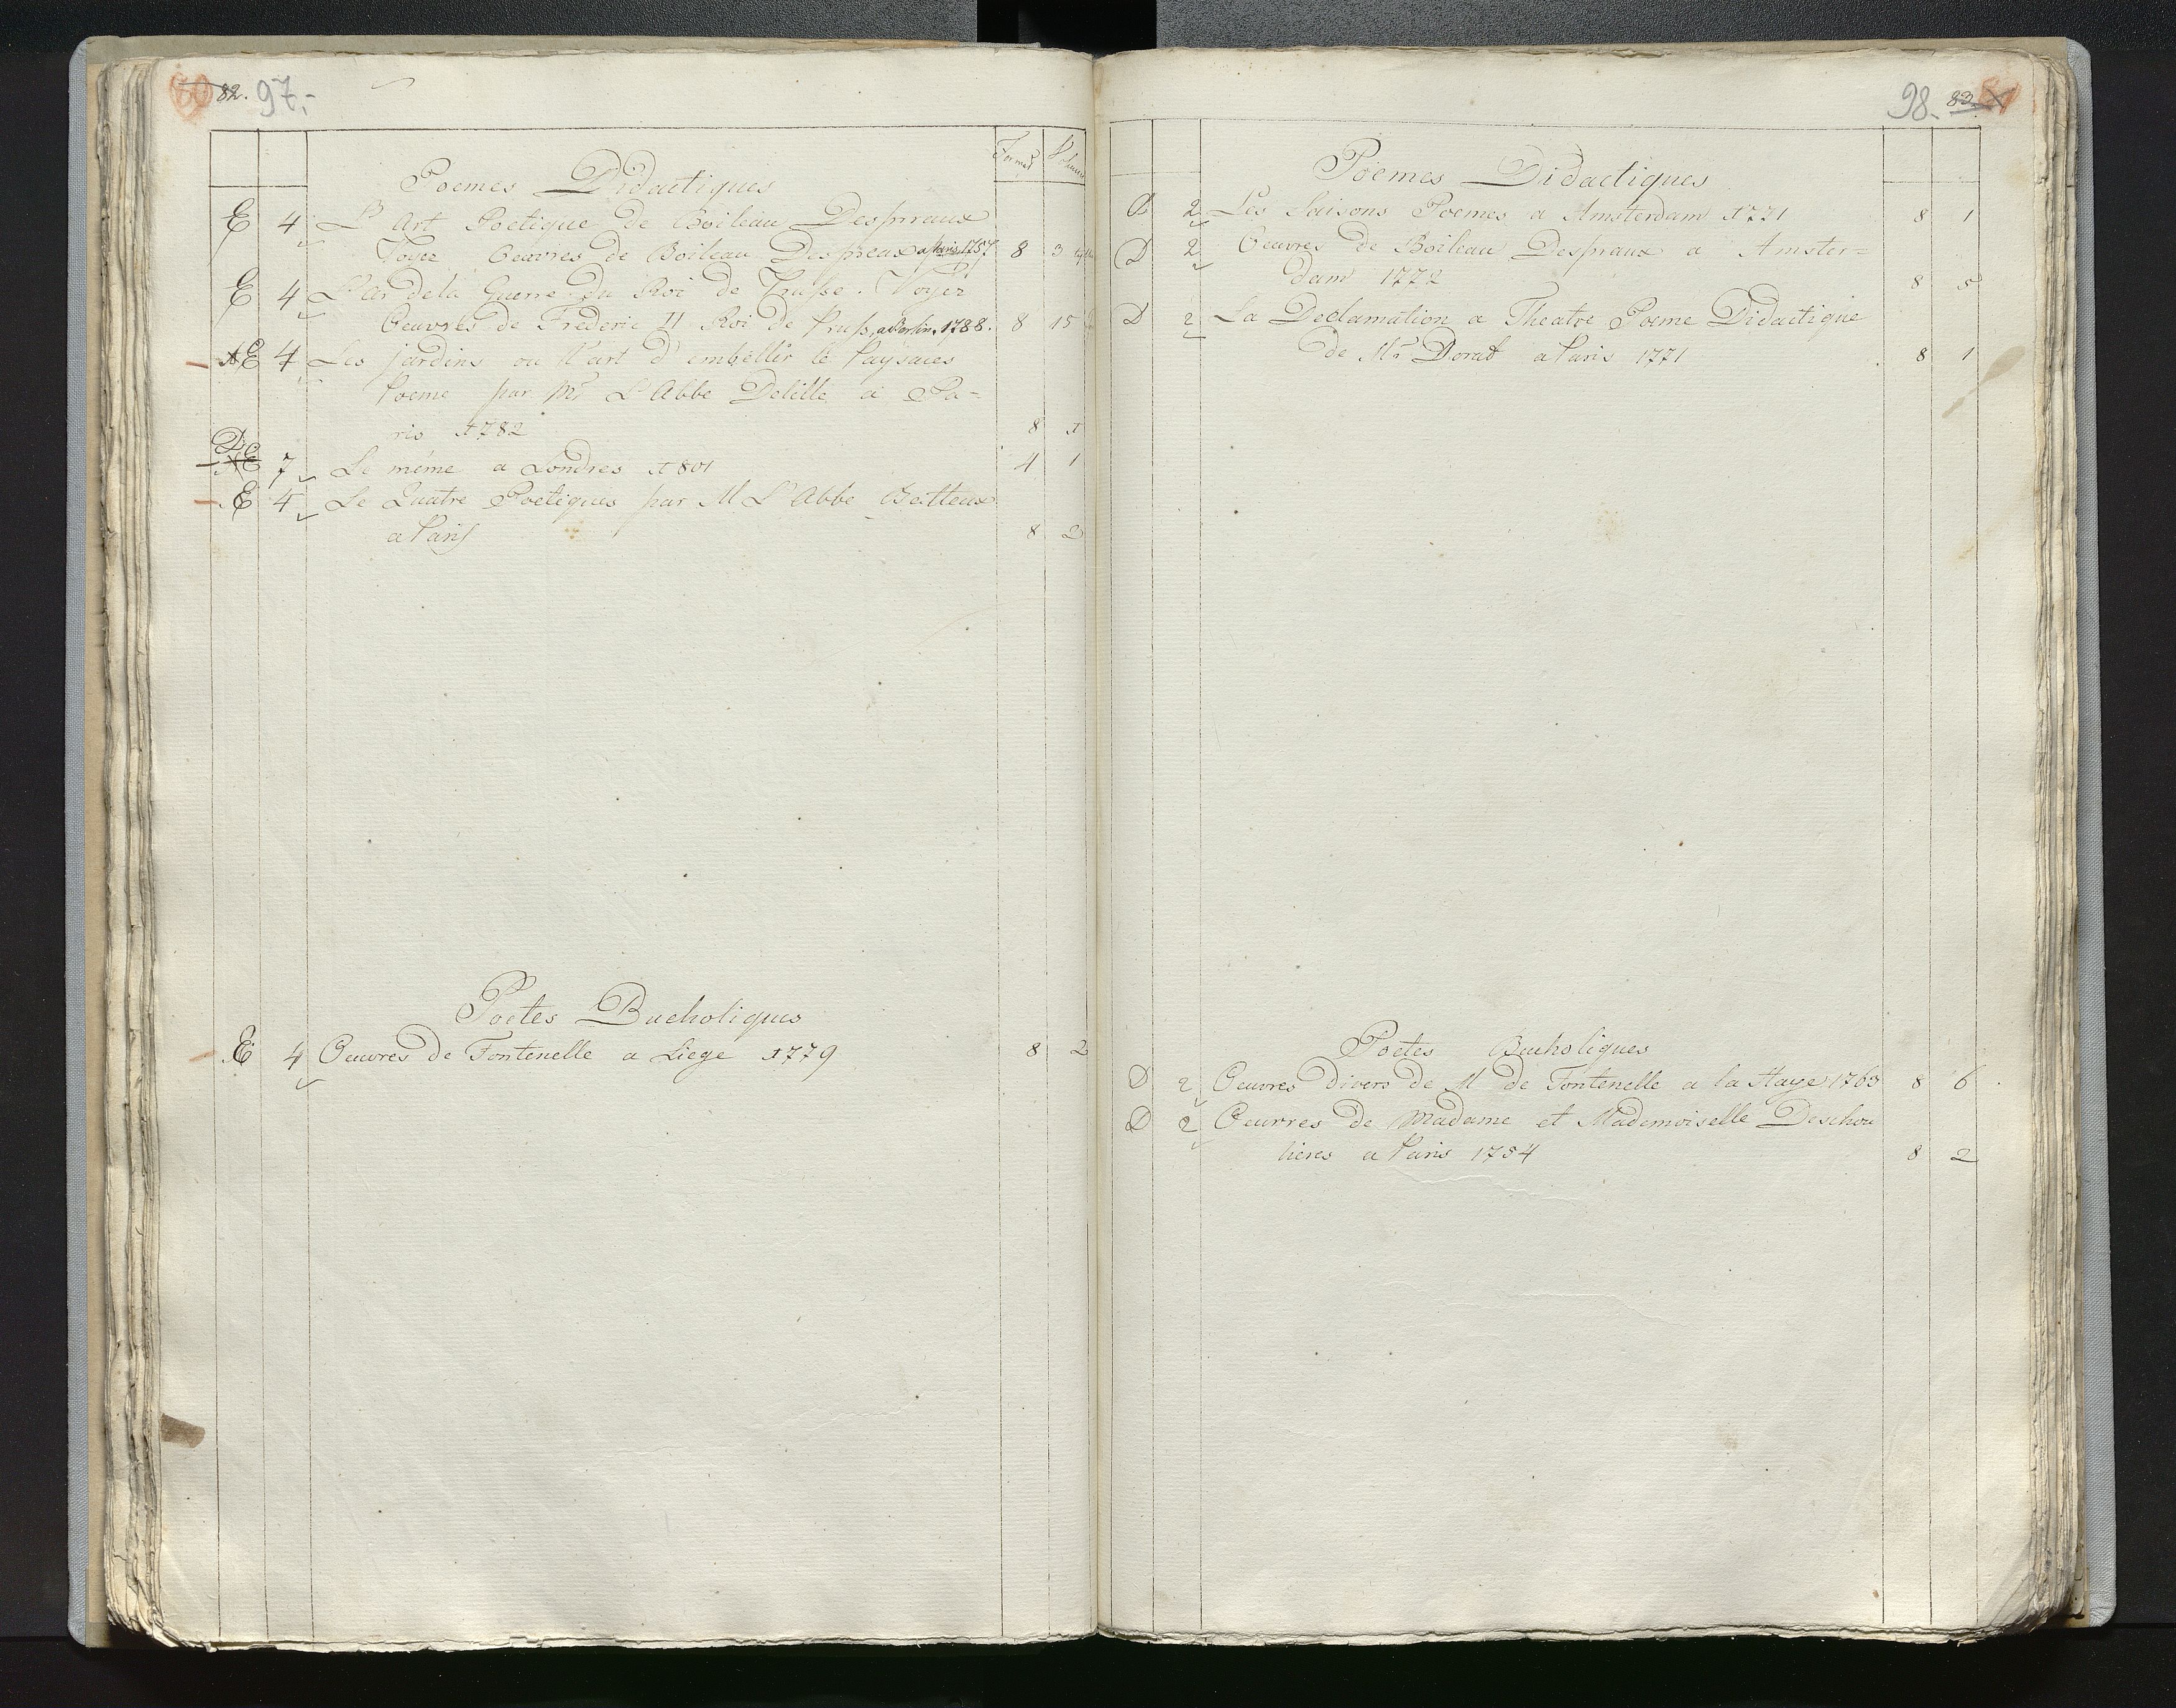 82. 97.-
Format
Poemes Didactiques
E 4 L'Art Poetique de Boileau Despreaux
Voyez Oeuvres de Boileau Despreaux a Paris 1757 8 3
E 4 L'Ar de la Guerre du Roi de Prusse. Voyez
Oeuvres de Frederic II Roi de Pruss, a Berlin. 1788. 8 15
AE 4 Les jardins ou l'art d'embellir le Paysaies
Poeme par Mr L'Abbe Delille a Pa-
ris 1782 8 1
DE
AE 7 Le méme a Londres 1801 4 1
E 4 Le Quatre Poetiques par M L'Abbe Batteux
a Paris 8 2
Poetes Bucholiques
E 4 Oeuvres de Fontenelle a Liege 1779 8 2
98. 83
Poemes Didactiques
D 2 Les Saisons Poemes a Amsterdam 1771 8 1
D 2 Oeuvres de Boileau Despraux a Amster=
dam 1772 8 5
D 2 La Declamation a Theatre Poeme Didactique
de Mr Dorat a Paris 1771 8 1
Poetes Bucholiques
D 2 Oeuvres divers de M de Fontenelle a la Haye 1763 8 6
D 2 Oeuvres de Madame et Mademoiselle Deschou
lieres a Paris 1754 8 2